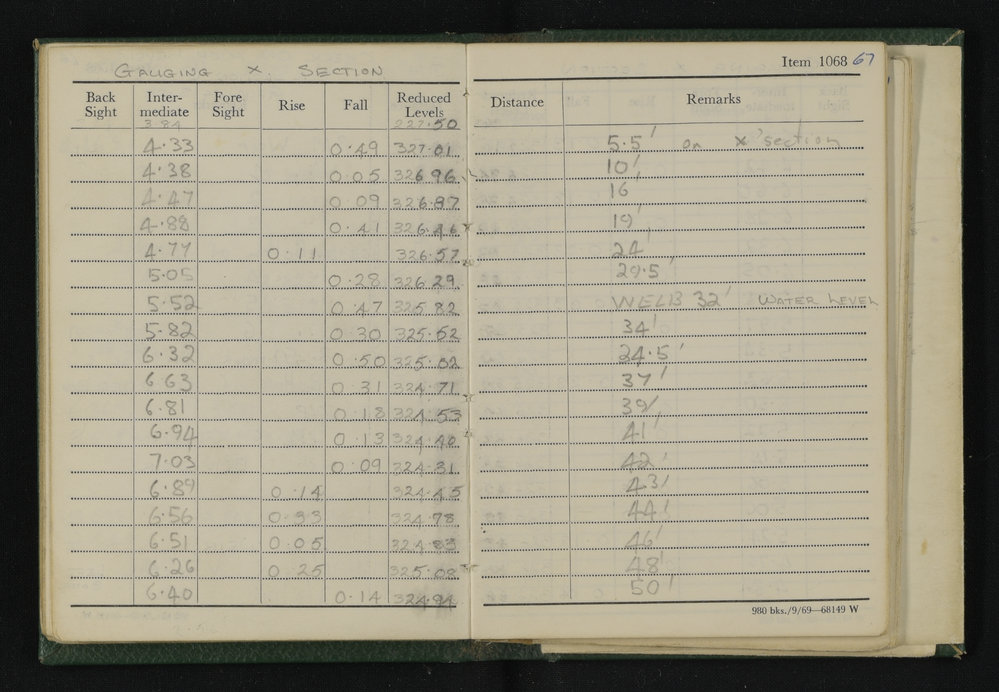 GAUGING X. SECTION
Item 1068 67
Back Sight Inter-mediate Fore Sight Rise Fall Reduced Levels Distance Remarks
3.84 227.50
4.33 0.49 327.01 5.5' on X'section
4.38 0.05 326.96 10'
4.47 0.09 326.87 16'
4.88 0.41 326.46 19'
4.77 0.11 326.57 24'
5.05 0.28 326.29 29.5'
5.52 0.47 325.82 WELB 32' WATER LEVEL
5.82 0.30 325.52 34'
6.32 0.50 325.02 24.5'
6.63 0.31 324.71 37'
6.81 0.18 324.53 39'
6.94 0.13 324.40 41'
7.03 0.09 324.31 42'
6.89 0.14 324.45 43'
6.56 0.33 324.78 44'
6.51 0.05 324.83 46'
6.26 0.25 325.08 48'
6.40 0.14 324.94 50'
980 bks./9/69—68149 W